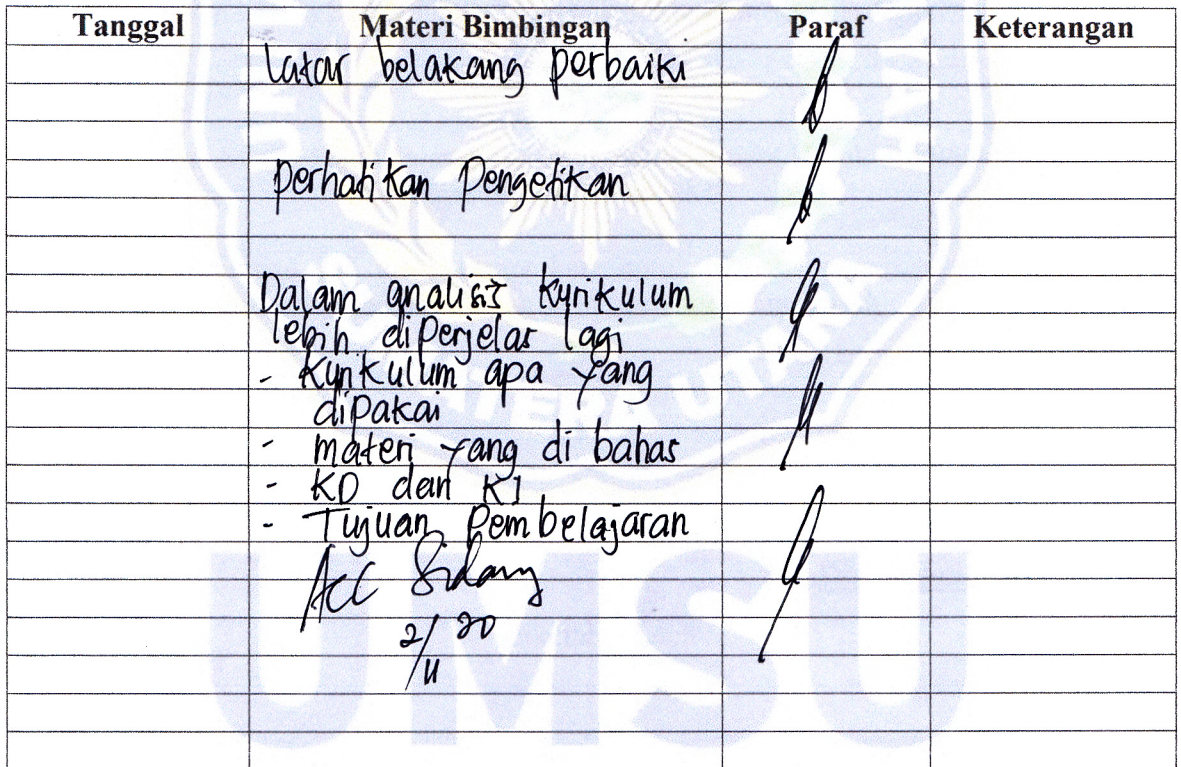 Tanggal Materi Bimbingan Paraf Keterangan
latar belakang perbaiki
perhatikan Pengetikan
Dalam analisis Kurikulum
lebih diperjelas lagi
- Kurikulum apa yang
dipakai
- materi yang di bahas
- KD dan KI
- Tujuan Pembelajaran
Acc Sidang
2/11 20
UMSU